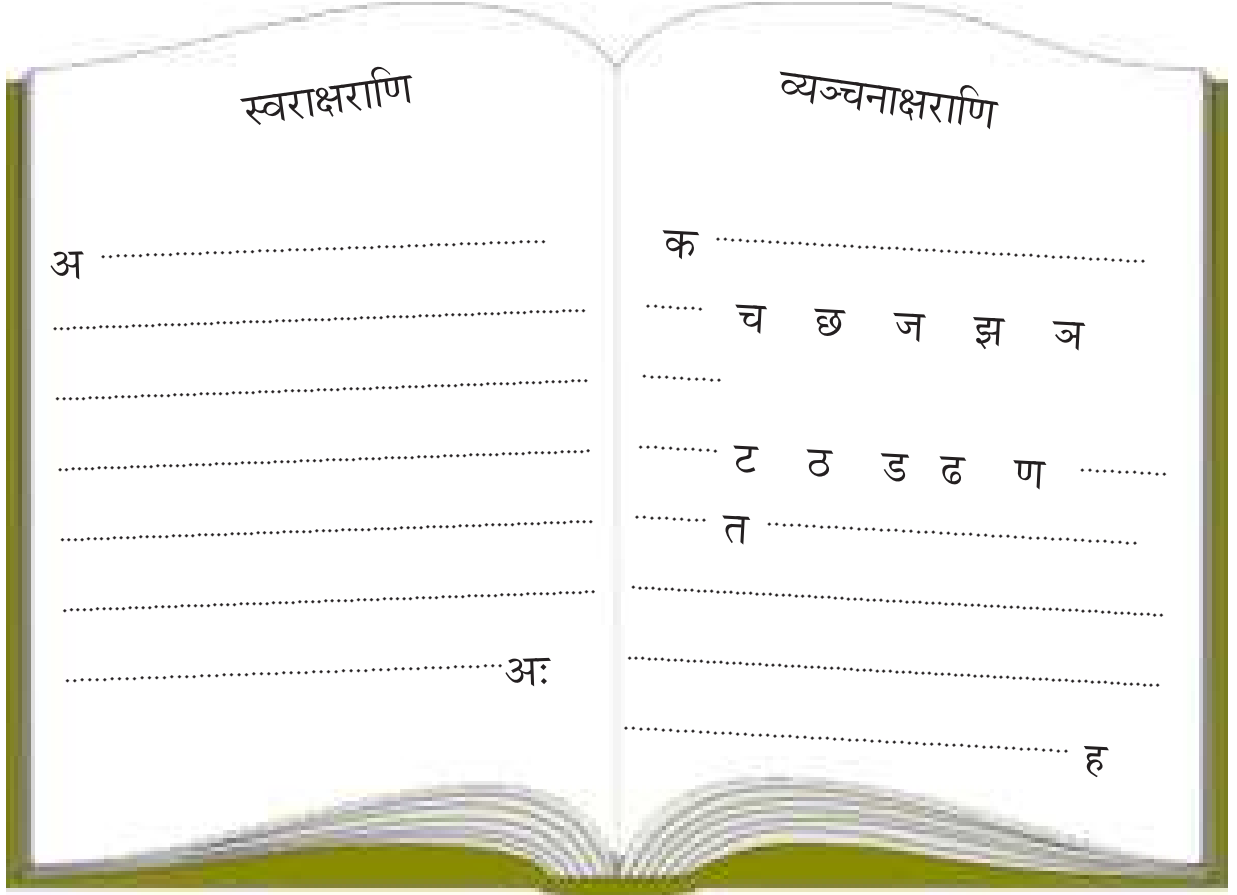 स्वराक्षराणि
अ ..........................................................
......................................................................
......................................................................
......................................................................
......................................................................
......................................................................
.......................................................... अः
व्यञ्चनाक्षराणि
क ..........................................................
........ च छ ज झ ञ
...........
........... ट ठ ड ढ ण ............
.......... त ..................................................
......................................................................
......................................................................
.......................................................... ह